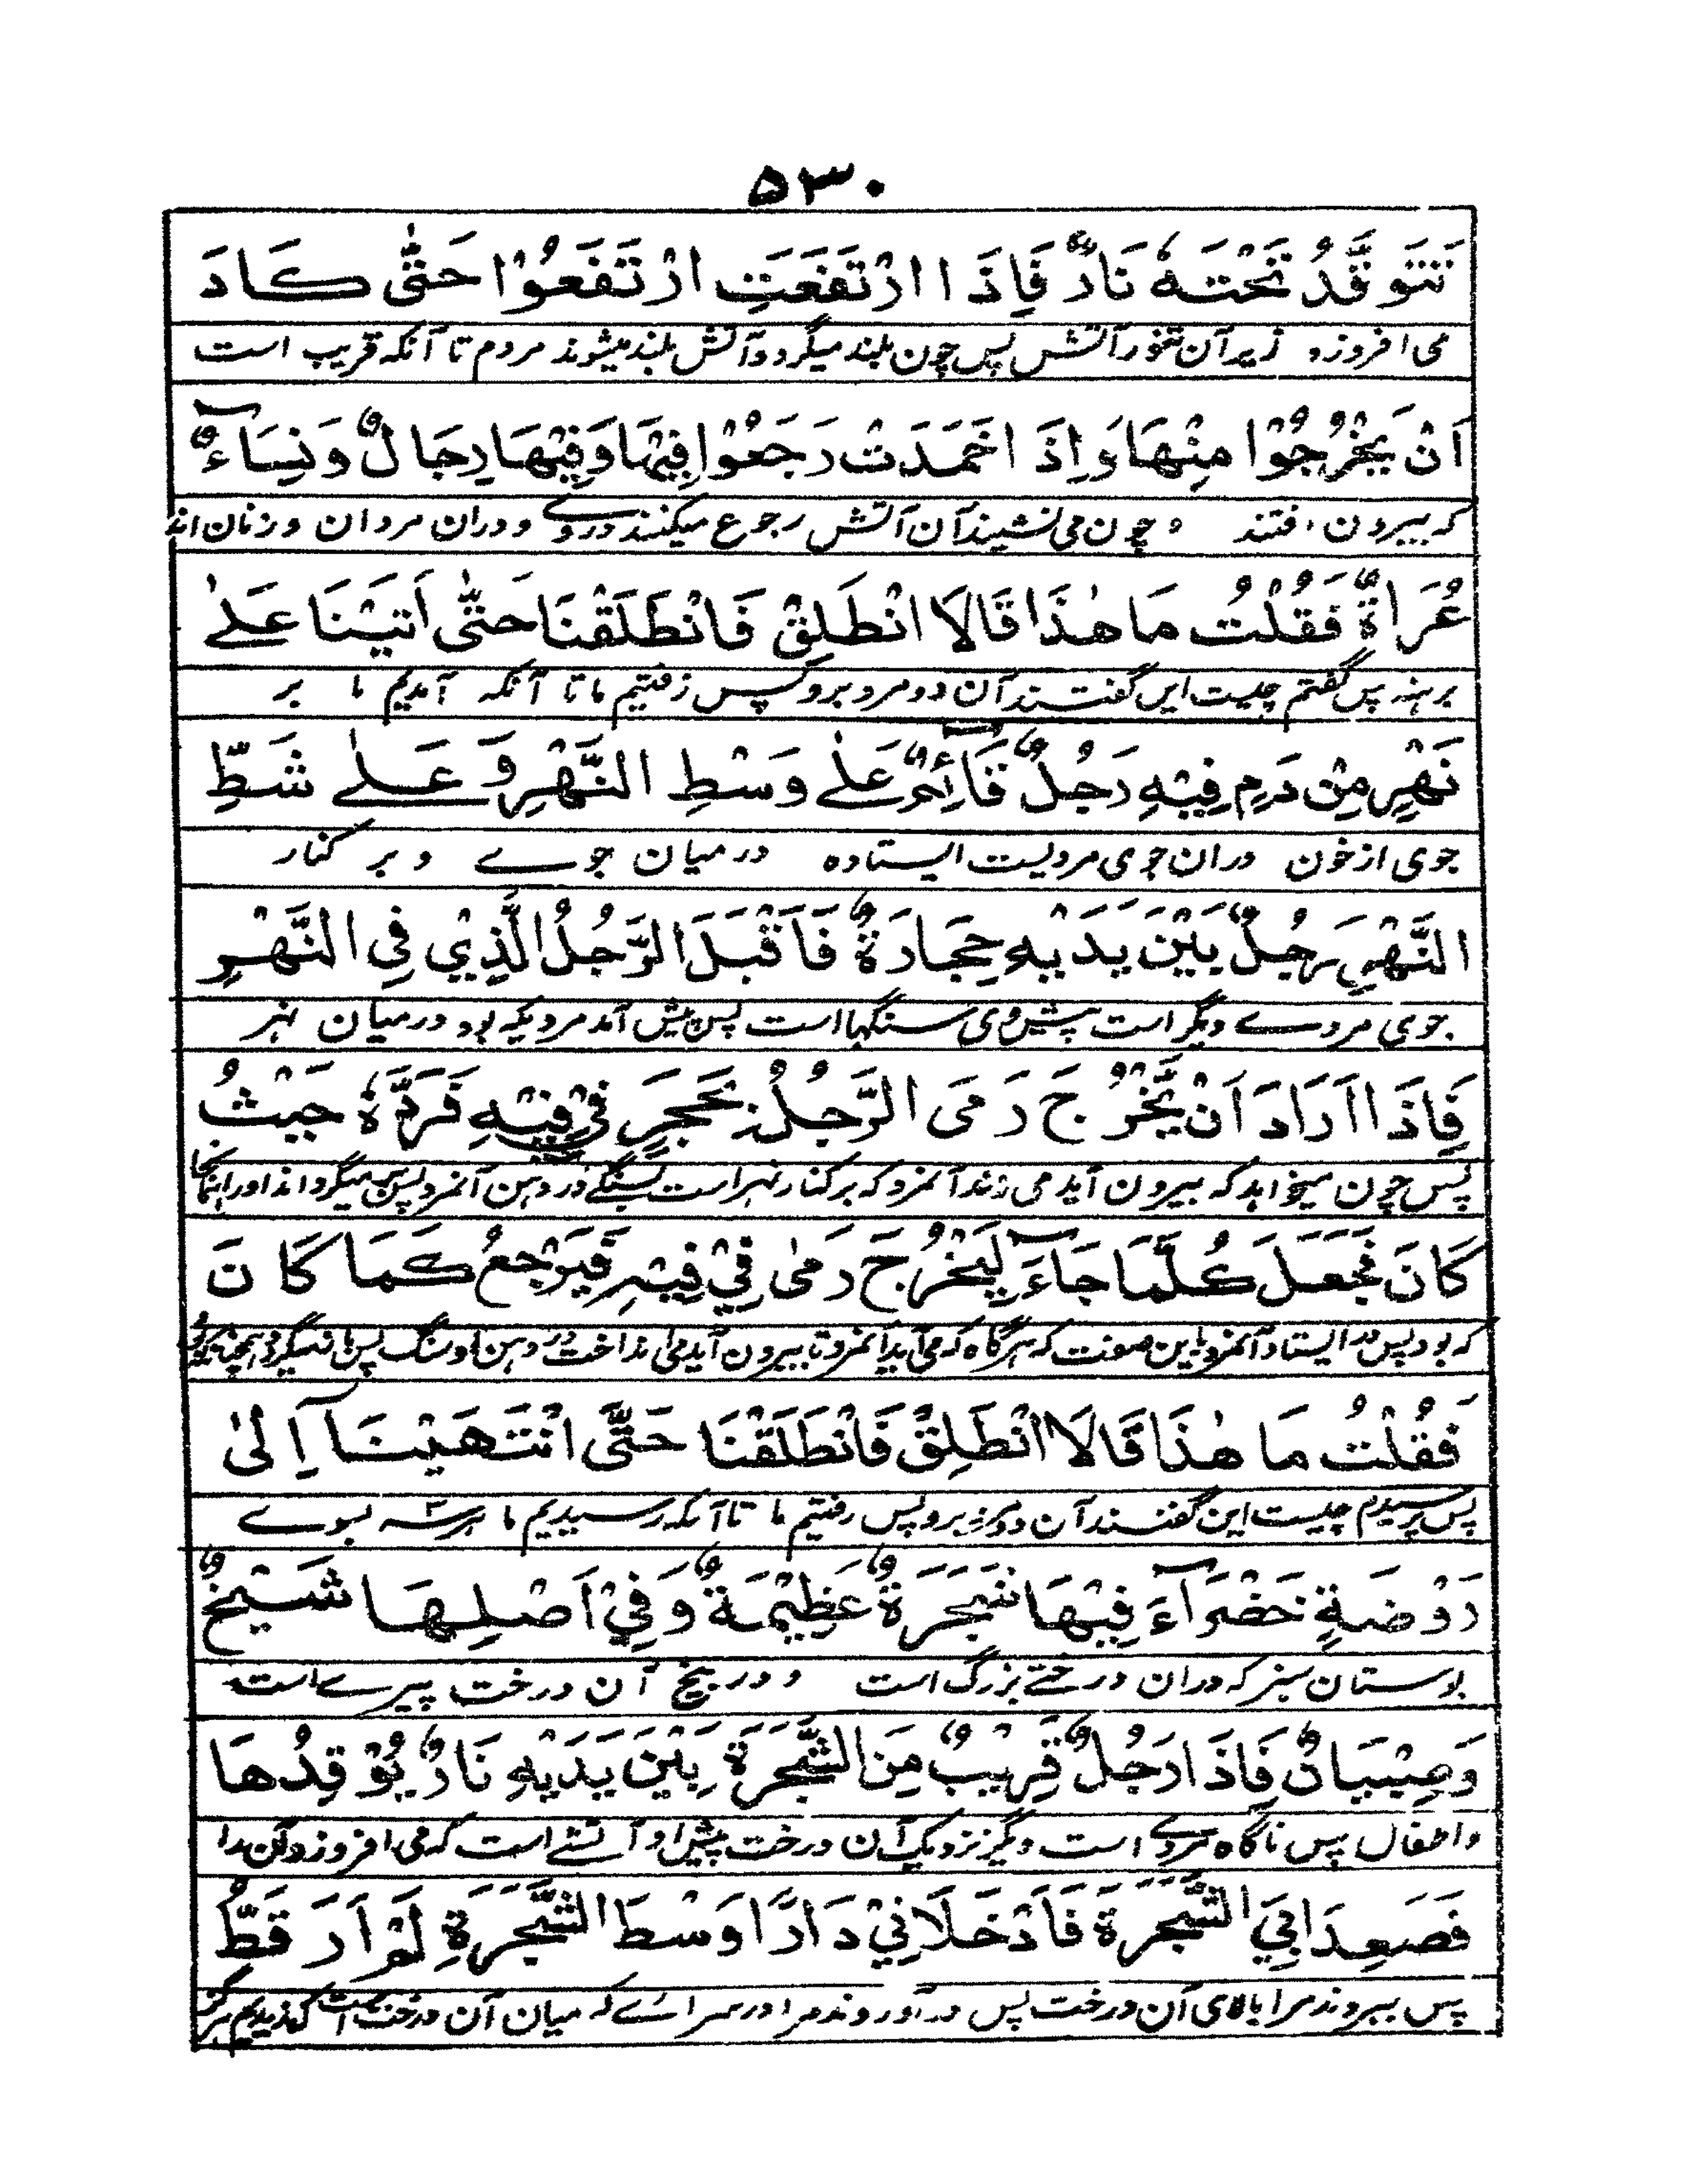 ۵۳۰
تَتَوَقَّدُ تَحْتَهٗ نَارٌ فَاِذَا ارْتَفَعَتِ ارْتَفَعُوْا حَتّٰى كَادَ
می افروزد زیر آن تنور آتش پس چون بلند میگردد آتش بلند میشوند مردم تا آنکه قریب است
اَنْ يَخْرُجُوْا مِنْهَا وَاِذَا خَمَدَتْ رَجَعُوْا فِيْهَا وَفِيْهَا رِجَالٌ وَنِسَآءٌ
که بیرون افتند و چون می نشیند آن آتش رجوع میکنند در وے و دران مردان و زنان اند
عُرَاةٌ فَقُلْتُ مَا هٰذَا قَالَا انْطَلِقْ فَانْطَلَقْنَا حَتّٰى اَتَيْنَا عَلٰے
برہنہ پس گفتم چیست این گفتند آن دو مرد برو پس رفتیم ما تا آنکه آمدیم ما بر
نَهْرٍ مِنْ دَمٍ فِيْهِ رَجُلٌ قَآئِمٌ عَلٰے وَسْطِ النَّهْرِ وَ عَلٰے شَطِّ
جوی از خون دران جوی مردیست ایستاده در میان جوے و بر کنار
النَّهْرِ رَجُلٌ بَيْنَ يَدَيْهِ حِجَارَةٌ فَاَقْبَلَ الرَّجُلُ الَّذِيْ فِي النَّهْرِ
جوی مردے دیگر است پیش وی سنگها است پس پیش آمد مردیکه بود درمیان نہر
فَاِذَا اَرَادَ اَنْ يَّخْرُجَ رَمَى الرَّجُلُ بِحَجَرٍ فِيْ فِيْهِ فَرَدَّهٗ حَيْثُ
پس چون میخواهد که بیرون آید می زند آنمرد که بر کنار نہر است بسنگے در دہن آنمرد پس میگرداند اورا آنجا
كَانَ فَجَعَلَ كُلَّمَا جَآءَ لِيَخْرُجَ رَمٰى فِيْ فِيْهِ فَيَرْجِعُ كَمَا كَانَ
که بود پس در ایستاد آنمرد باین صفت که ہرگاه که می آید آنمرد تا بیرون آید می انداخت در دہن او سنگ پس باز میگردد
فَقُلْتُ مَا هٰذَا قَالَا انْطَلِقْ فَانْطَلَقْنَا حَتَّى انْتَهَيْنَا اِلٰى
پس پرسیدم چیست این گفتند آن دو مرد برو پس رفتیم ما تا آنکه رسیدیم ما ہر سہ بسوے
رَوْضَةٍ خَضْرَآءَ فِيْهَا شَجَرَةٌ عَظِيْمَةٌ وَفِيْ اَصْلِهَا شَيْخٌ
بوستان سبز که دران درختے بزرگ است و در بیخ آن درخت پیرے است
وَصِبْيَانٌ فَاِذَا رَجُلٌ قَرِيْبٌ مِنَ الشَّجَرَةِ بَيْنَ يَدَيْهِ نَارٌ يُوْقِدُهَا
و اطفال پس ناگاه مردے است دیگر نزدیک آن درخت پیش او آتشے است که می افروزد آن را
فَصَعِدَا بِيَ الشَّجَرَةَ فَاَدْخَلَانِيْ دَارًا وَسْطَ الشَّجَرَةِ لَمْ اَرَ قَطُّ
پس ببردند مرا بالای آن درخت پس در آوردند مرا در سرائے که میان آن درخت است که ندیدیم ہرگز